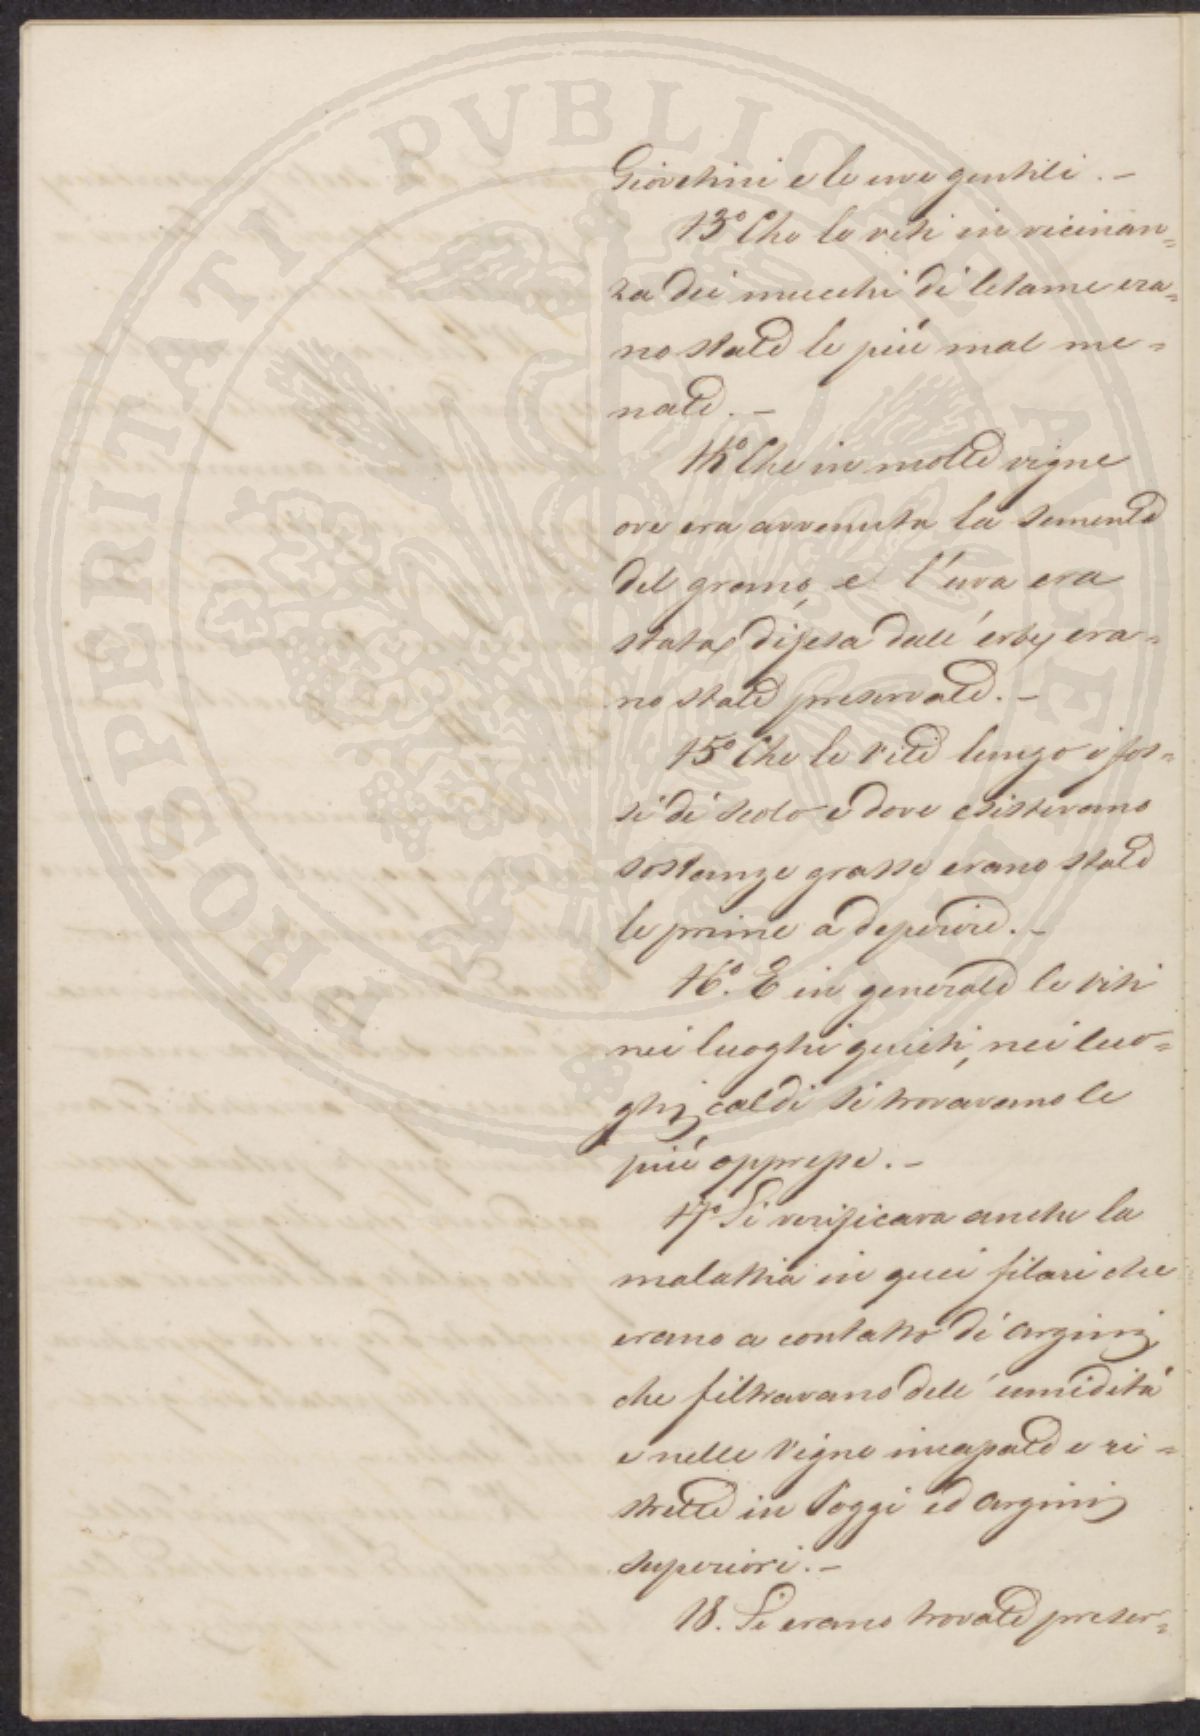 Giovetini e le uve gentili. –
13° Che le viti in vicinan=
za dei mucchi di letame era=
no state le più mal me=
nate. –
14° Che in molte vigne
ove era avvenuta la sementa
del grano, e l'uva era
stata difesa dall'erbe, era=
no state preservate. –
15° Che le Viti lungo i fos=
si di scolo e dove esistevano
sostanze grasse erano state
le prime a deperire. –
16°. E in generale le viti
nei luoghi quieti, nei luo=
ghi caldi si trovavano le
più oppresse. –
17° Si verificava anche la
malattia in quei filari che
erano a contatto di argini
che filtravano dell'umidità
e nelle Vigne incassate e ri=
strette in Poggi ed argini
superiori. –
18. Si erano trovate preser=
PROSPERITATI PVBLICAE AVGENDAE